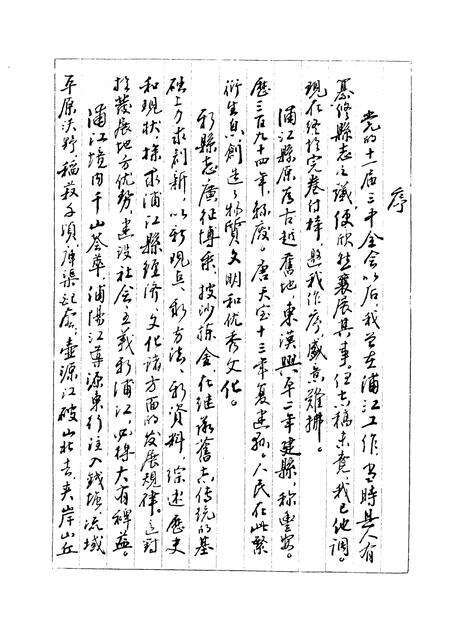 序
党的十一届三中全会以后，我曾在浦江工作，当时县人有
纂修縣志之議，便欣然襄展其事。但志稿未竟，我已他調。
现在终于完卷付梓，邀我作序，盛意難拂。
浦江縣原为古越舊地，東漢興平二年建縣，称豐安。
歷三百九十四年，縣廢。唐天宝十三年复建縣。人民在此繁
衍生息，創造了物質文明和优秀文化。
新縣志廣征博采，披沙拣金，在继承舊志传统的基
础上力求創新，以新观点、新方法、新资料，综述歷史
和现状，探求浦江縣經济、文化诸方面的发展規律。这对
於發展地方优勢，建设社会主义新浦江，必将大有裨益。
浦江境内千山荟萃，浦陽江尋源東行注入钱塘，流域
平原沃野，稻菽千顷，庫渠记密，壺源江破山北去，夹岸山丘